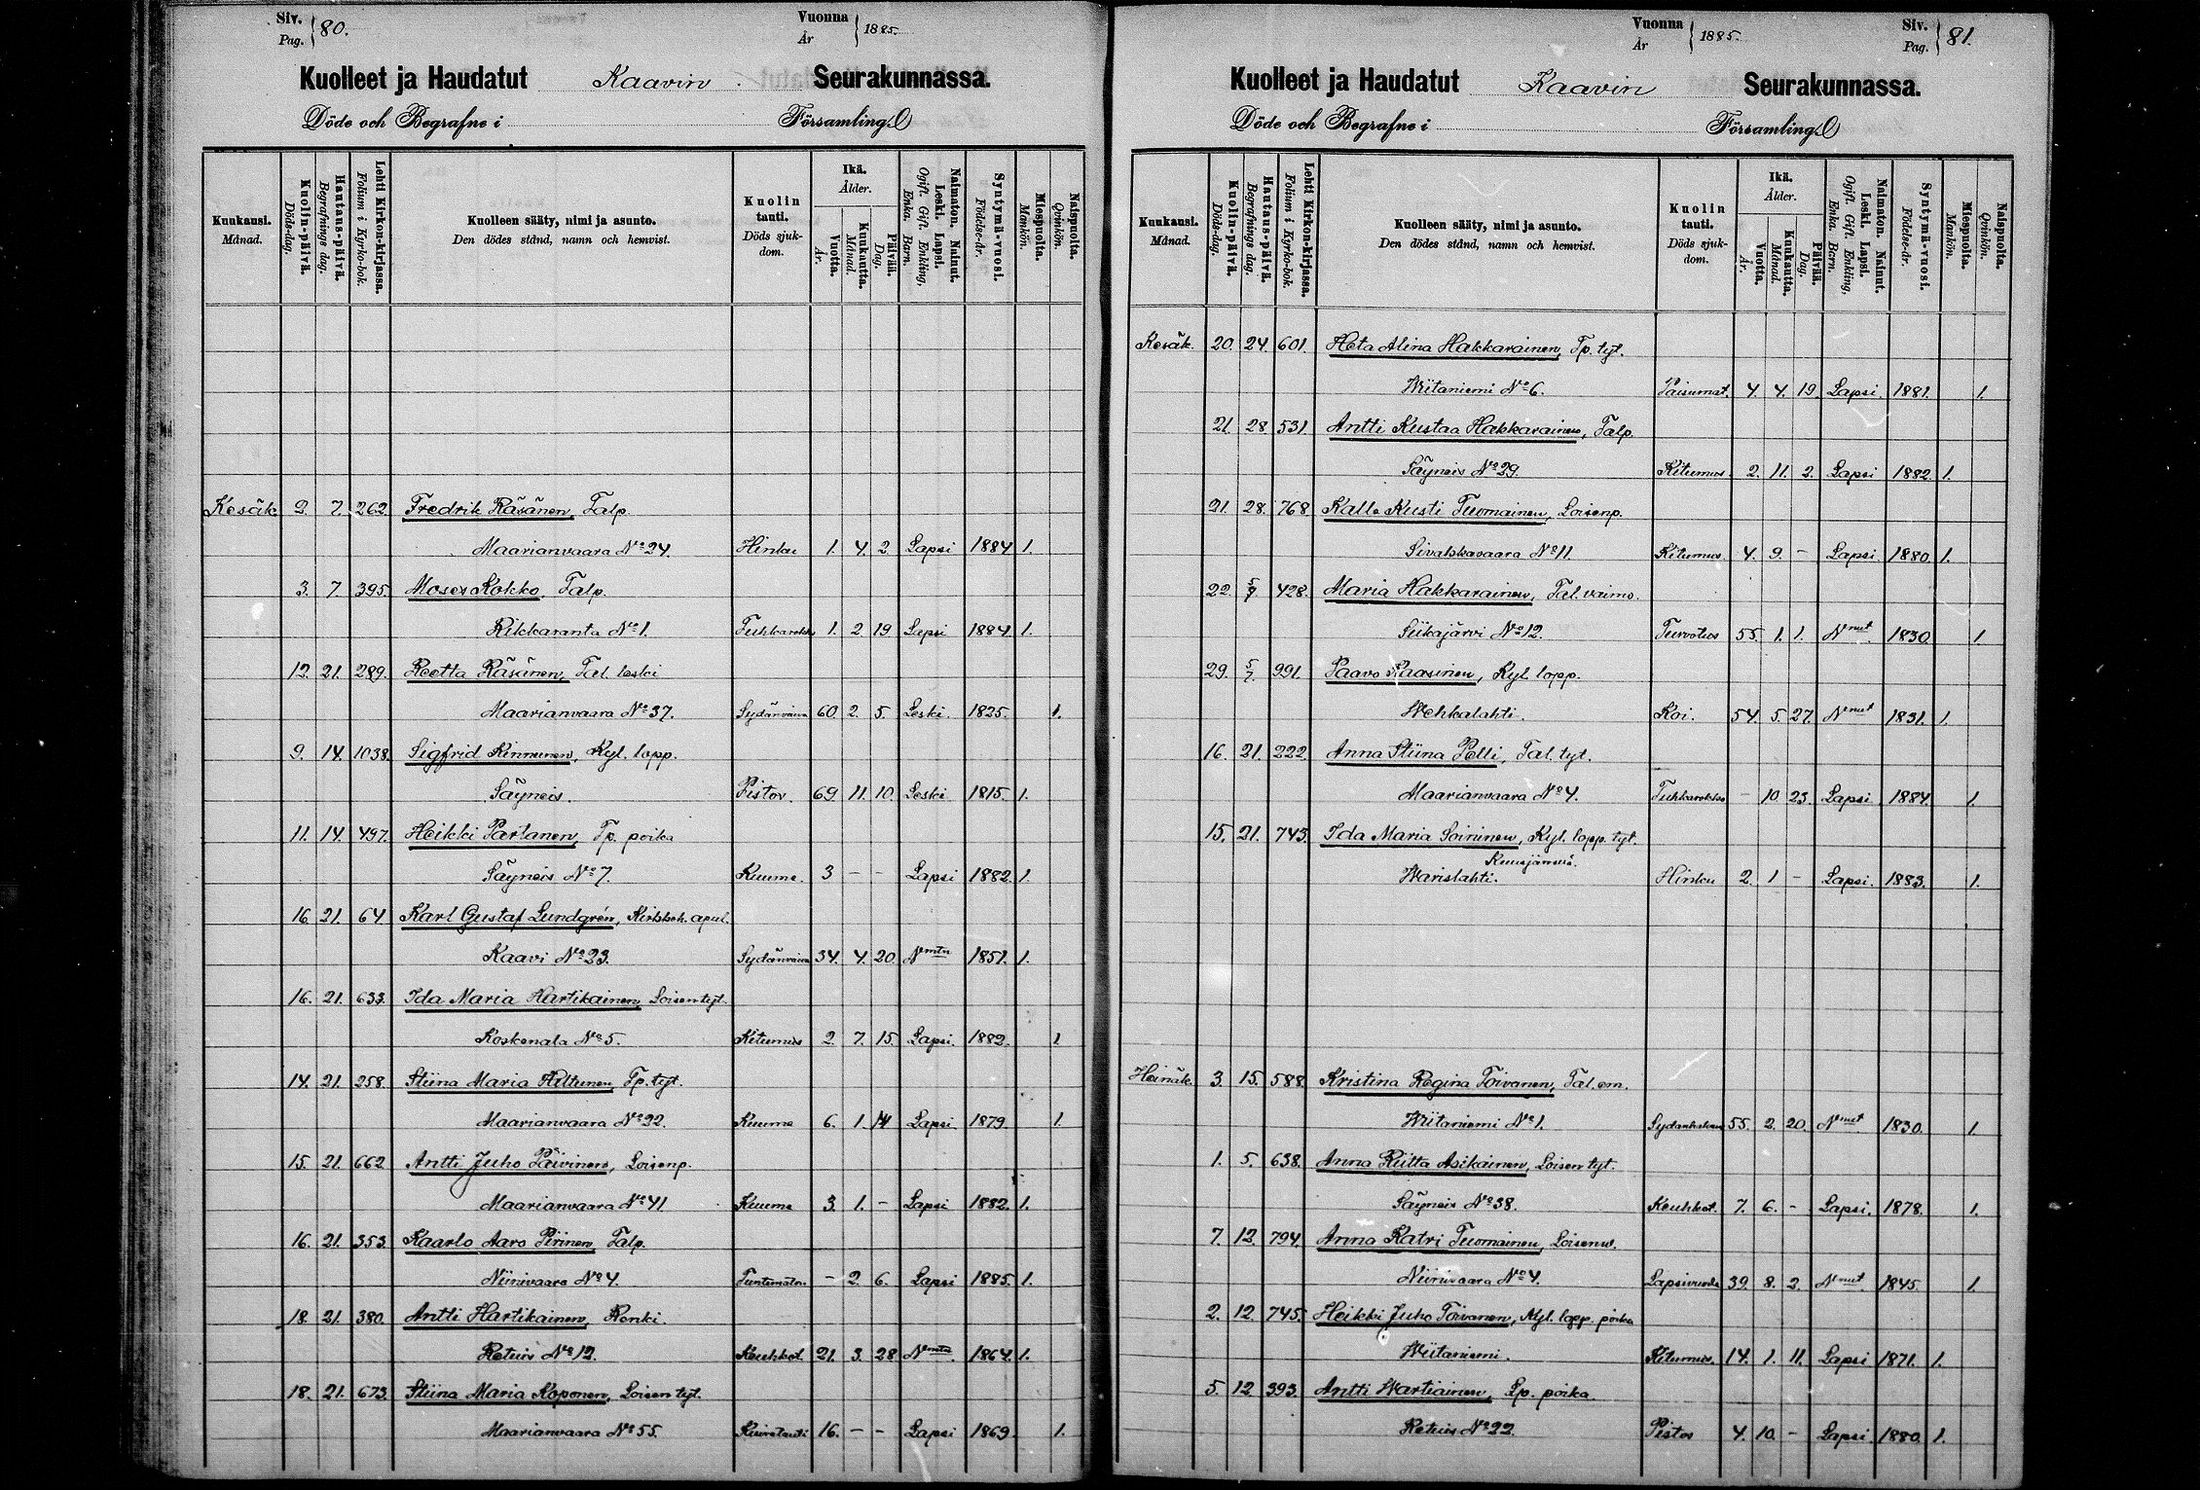 Siv. Pag. 80. Vuonna År 1885.
Kuolleet ja Haudatut Kaavin Seurakunnassa.
Döde och Begrafne i Församling
Kuukausi. Månad. Kuolin-päivä. Döds-dag. Hautaus-päivä. Begrafnings dag. Lehti Kirkon-kirjassa. Folium i Kyrko-bok. Kuolleen sääty, nimi ja asunto. Den dödes stånd, namn och hemvist. Kuolin tauti. Döds sjuk-dom. Ikä. Ålder. Vuotta. År. Kuukautta. Månad. Päivää. Dag. Naimaton. Nainut. Leski. Lapsi. Ogift. Gift. Enkling, Enka. Barn. Syntymä-vuosi. Födelse-år. Miespuolta. Mankön. Naispuolta. Qvinkön.
Kesäk. 2. 7. 262 Fredrik Räsänen, Talp.
Maarianvaara No 24. Hinku 1. 4. 2. Lapsi 1884 1.
3. 7. 395. Moses Kokko, Talp.
Rikkaranta No 1. Tuhkarokko 1. 2. 19 Lapsi 1884. 1.
12. 21. 289. Reetta Räsänen, Tal. leski
Maarianvaara No 37. Sydänvika 60. 2. 5. Leski. 1825. 1.
9. 14. 1038. Sigfrid Kinnunen, Kyl. lopp.
Säyneis. Pistos. 69. 11. 10. Leski 1815. 1.
11. 14. 497. Heikki Partanen, Tp. poika
Säyneis No 7. Kuume. 3 - - Lapsi 1882. 1.
16. 21. 64 Karl Gustaf Lundgrén, Kirkkoh. apul.
Kaavi No 23. Sydänvika 34. 4. 20. Nmtn 1851. 1.
16. 21. 633. Ida Maria Hartikainen, Loisen tyt.
Koskenala No 5. Kitumus 2. 7. 15. Lapsi. 1882. 1
14. 21. 258. Stiina Maria Hiltunen Tp. tyt.
Maarianvaara No 22. Kuume 6. 1. 14 Lapsi. 1879. 1.
15. 21. 662. Antti Juho Päivinen, Loisenp.
Maarianvaara No 41 Kuume 3. 1. - Lapsi 1882. 1.
16. 21. 353. Kaarlo Aaro Piirinen, Talp.
Niinivaara No 4. Tuntematon. - 2. 6. Lapsi 1885. 1.
18. 21. 380. Antti Hartikainen, Renki.
Retuis No 12. Keuhkot. 21. 3. 28 Nmtn 1864. 1.
18. 21. 673. Stiina Maria Koponen, Loisen tyt.
Maarianvaara No 55. 16. - - Lapsi 1869 1.
Vuonna År 1885. Siv. Pag. 81.
Kuolleet ja Haudatut Kaavin Seurakunnassa.
Döde och Begrafne i Församling
Kuukausi. Månad. Kuolin-päivä. Döds-dag. Hautaus-päivä. Begrafnings dag. Lehti Kirkon-kirjassa. Folium i Kyrko-bok. Kuolleen sääty, nimi ja asunto. Den dödes stånd, namn och hemvist. Kuolin tauti. Döds sjuk-dom. Ikä. Ålder. Vuotta. År. Kuukautta. Månad. Päivää. Dag. Naimaton. Nainut. Leski. Lapsi. Ogift. Gift. Enkling, Enka. Barn. Syntymä-vuosi. Födelse-år. Miespuolta. Mankön. Naispuolta. Qvinkön.
Kesäk. 20. 24. 601. Heta Alina Hakkarainen, Tp. tyt.
Wiitaniemi No 6. Paisumat. 4. 4. 19. Lapsi. 1881. 1.
21. 28 531 Antti Kustaa Hakkarainen, Talp.
Säyneis No 29. Kitumus. 2. 11. 2. Lapsi 1882. 1.
21. 28. 768. Kalle Kusti Tuomainen, Loisenp.
Sivakkavaara No 11 Kitumus. 4. 9. - Lapsi. 1880. 1.
22. 5/7. 428. Maria Hakkarainen, Tal. vaimo.
Siikajärvi No 12. Turvotus 55. 1. 1. Nnut. 1830. 1.
29. 5/7. 991. Paavo Raasinen, Kyl. lopp.
Wehkalahti. Koi. 54. 5. 27. Nnut 1831. 1.
16. 21. 222. Anna Stiina Pelli, Tal. tyt.
Maarianvaara No 4. Tuhkarokko - 10. 23. Lapsi. 1884. 1.
15. 21. 743. Ida Maria Soininen, Kyl. lopp. tyt.
Kuusjärveä.
Warislahti. Hinku 2. 1 - Lapsi. 1883. 1.
Heinäk. 3. 15. 588. Kristina Regina Toivanen, Tal. em.
Wiitaniemi No 1. 55. 2. 20. Nnut. 1830. 1.
1. 5. 638. Anna Riitta Asikainen, Loisen tyt.
Säyneis No 38. Keuhkot. 7. 6. - Lapsi. 1878. 1.
7. 12. 794. Anna Katri Tuomainen, Loisenv.
Niinivaara No 4. Lapsivuode 39. 8. 2. Nnut. 1845. 1.
2. 12. 745. Heikki Juho Toivanen, Kyl. lopp. poika
Wiitaniemi. Kitumus. 14. 1. 11. Lapsi 1871. 1.
5. 12. 393. Antti Wartiainen, Lp. poika.
Retuis No 22. Pistos 4. 10. - Lapsi. 1880. 1.